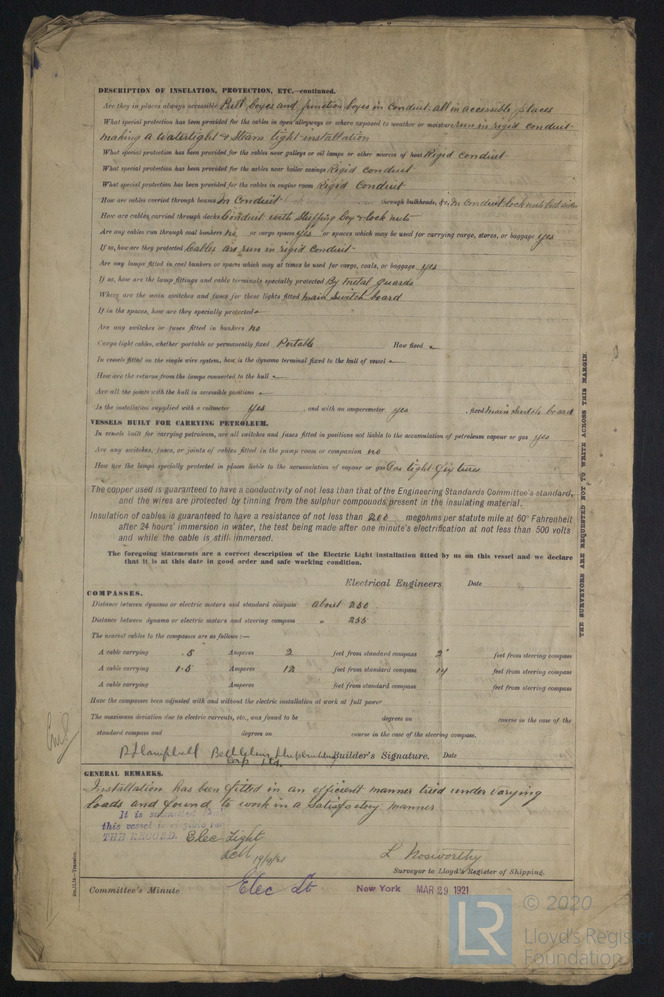 DESCRIPTION OF INSULATION, PROTECTION, ETC.—continued.
Are they in places always accessible Pull boxes and junction boxes in conduit all in accessible places
What special protection has been provided for the cables in open alleyways or where exposed to weather or moisture run in rigid conduit
making a watertight & steam tight installation
What special protection has been provided for the cables near galleys or oil lamps or other sources of heat Rigid conduit
What special protection has been provided for the cables near boiler casings Rigid conduit
What special protection has been provided for the cables in engine room Rigid Conduit
How are cables carried through beams In Conduit through bulkheads, &c. In conduit lock nuts both sides
How are cables carried through decks Conduit with Stuffing box & lock nuts
Are any cables run through coal bunkers no or cargo spaces yes or spaces which may be used for carrying cargo, stores, or baggage yes
If so, how are they protected Cables are run in rigid conduit
Are any lamps fitted in coal bunkers or spaces which may at times be used for cargo, coals, or baggage yes
If so, how are the lamp fittings and cable terminals specially protected By metal guards
Where are the main switches and fuses for these lights fitted main Switch board
If in the spaces, how are they specially protected
Are any switches or fuses fitted in bunkers no
Cargo light cables, whether portable or permanently fixed Portable How fixed
In vessels fitted on the single wire system, how is the dynamo terminal fixed to the hull of vessel
How are the returns from the lamps connected to the hull
Are all the joints with the hull in accessible positions
Is the installation supplied with a voltmeter Yes , and with an amperemeter yes , fixed main Switch board
VESSELS BUILT FOR CARRYING PETROLEUM.
In vessels built for carrying petroleum, are all switches and fuses fitted in positions not liable to the accumulation of petroleum vapour or gas yes
Are any switches, fuses, or joints of cables fitted in the pump room or companion no
How are the lamps specially protected in places liable to the accumulation of vapour or gas Gas tight fixtures
The copper used is guaranteed to have a conductivity of not less than that of the Engineering Standards Committee's standard,
and the wires are protected by tinning from the sulphur compounds present in the insulating material.
Insulation of cables is guaranteed to have a resistance of not less than 200 megohms per statute mile at 60° Fahrenheit
after 24 hours' immersion in water, the test being made after one minute's electrification at not less than 500 volts
and while the cable is still immersed.
The foregoing statements are a correct description of the Electric Light installation fitted by us on this vessel and we declare
that it is at this date in good order and safe working condition.
Electrical Engineers Date
COMPASSES.
Distance between dynamo or electric motors and standard compass about 250
Distance between dynamo or electric motors and steering compass " 255
The nearest cables to the compasses are as follows:—
A cable carrying .5 Amperes 2 feet from standard compass 2 feet from steering compass
A cable carrying 1.5 Amperes 12 feet from standard compass 14 feet from steering compass
A cable carrying Amperes feet from standard compass feet from steering compass
Have the compasses been adjusted with and without the electric installation at work at full power
The maximum deviation due to electric currents, etc., was found to be degrees on course in the case of the
standard compass and degrees on course in the case of the steering compass.
Campbell Bethlehem Shipbuilding Builder's Signature. Date
Corp Ltd.
GENERAL REMARKS.
Installation has been fitted in an efficient manner tried under varying
loads and found to work in a satisfactory manner
It is submitted that
this vessel is eligible for
THE RECORD. Elec Light
L. Nosworthy
Surveyor to Lloyd's Register of Shipping.
Committee's Minute Elec Lt New York MAR 29 1921
THE SURVEYORS ARE REQUESTED NOT TO WRITE ACROSS THIS MARGIN.
LR
© 2020
Lloyd's Register
Foundation